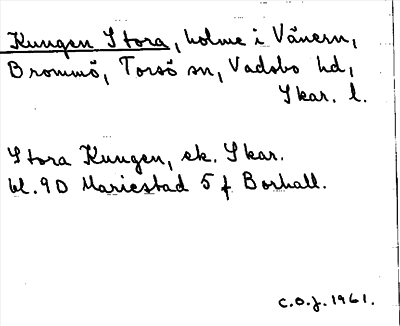 Kungen Stora, holme i Vänern,
Brommö, Torsö sn, Vadsbo hd,
Skar. l.
Stora Kungen, ek. Skar.
bl. 9D Mariestad 5 f Borhall.
C.O.J. 1961.